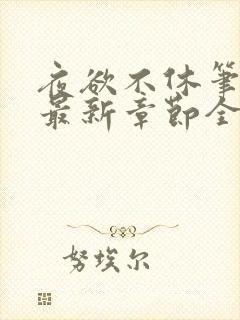 夜欲不休笔
最新章节全
努埃尔